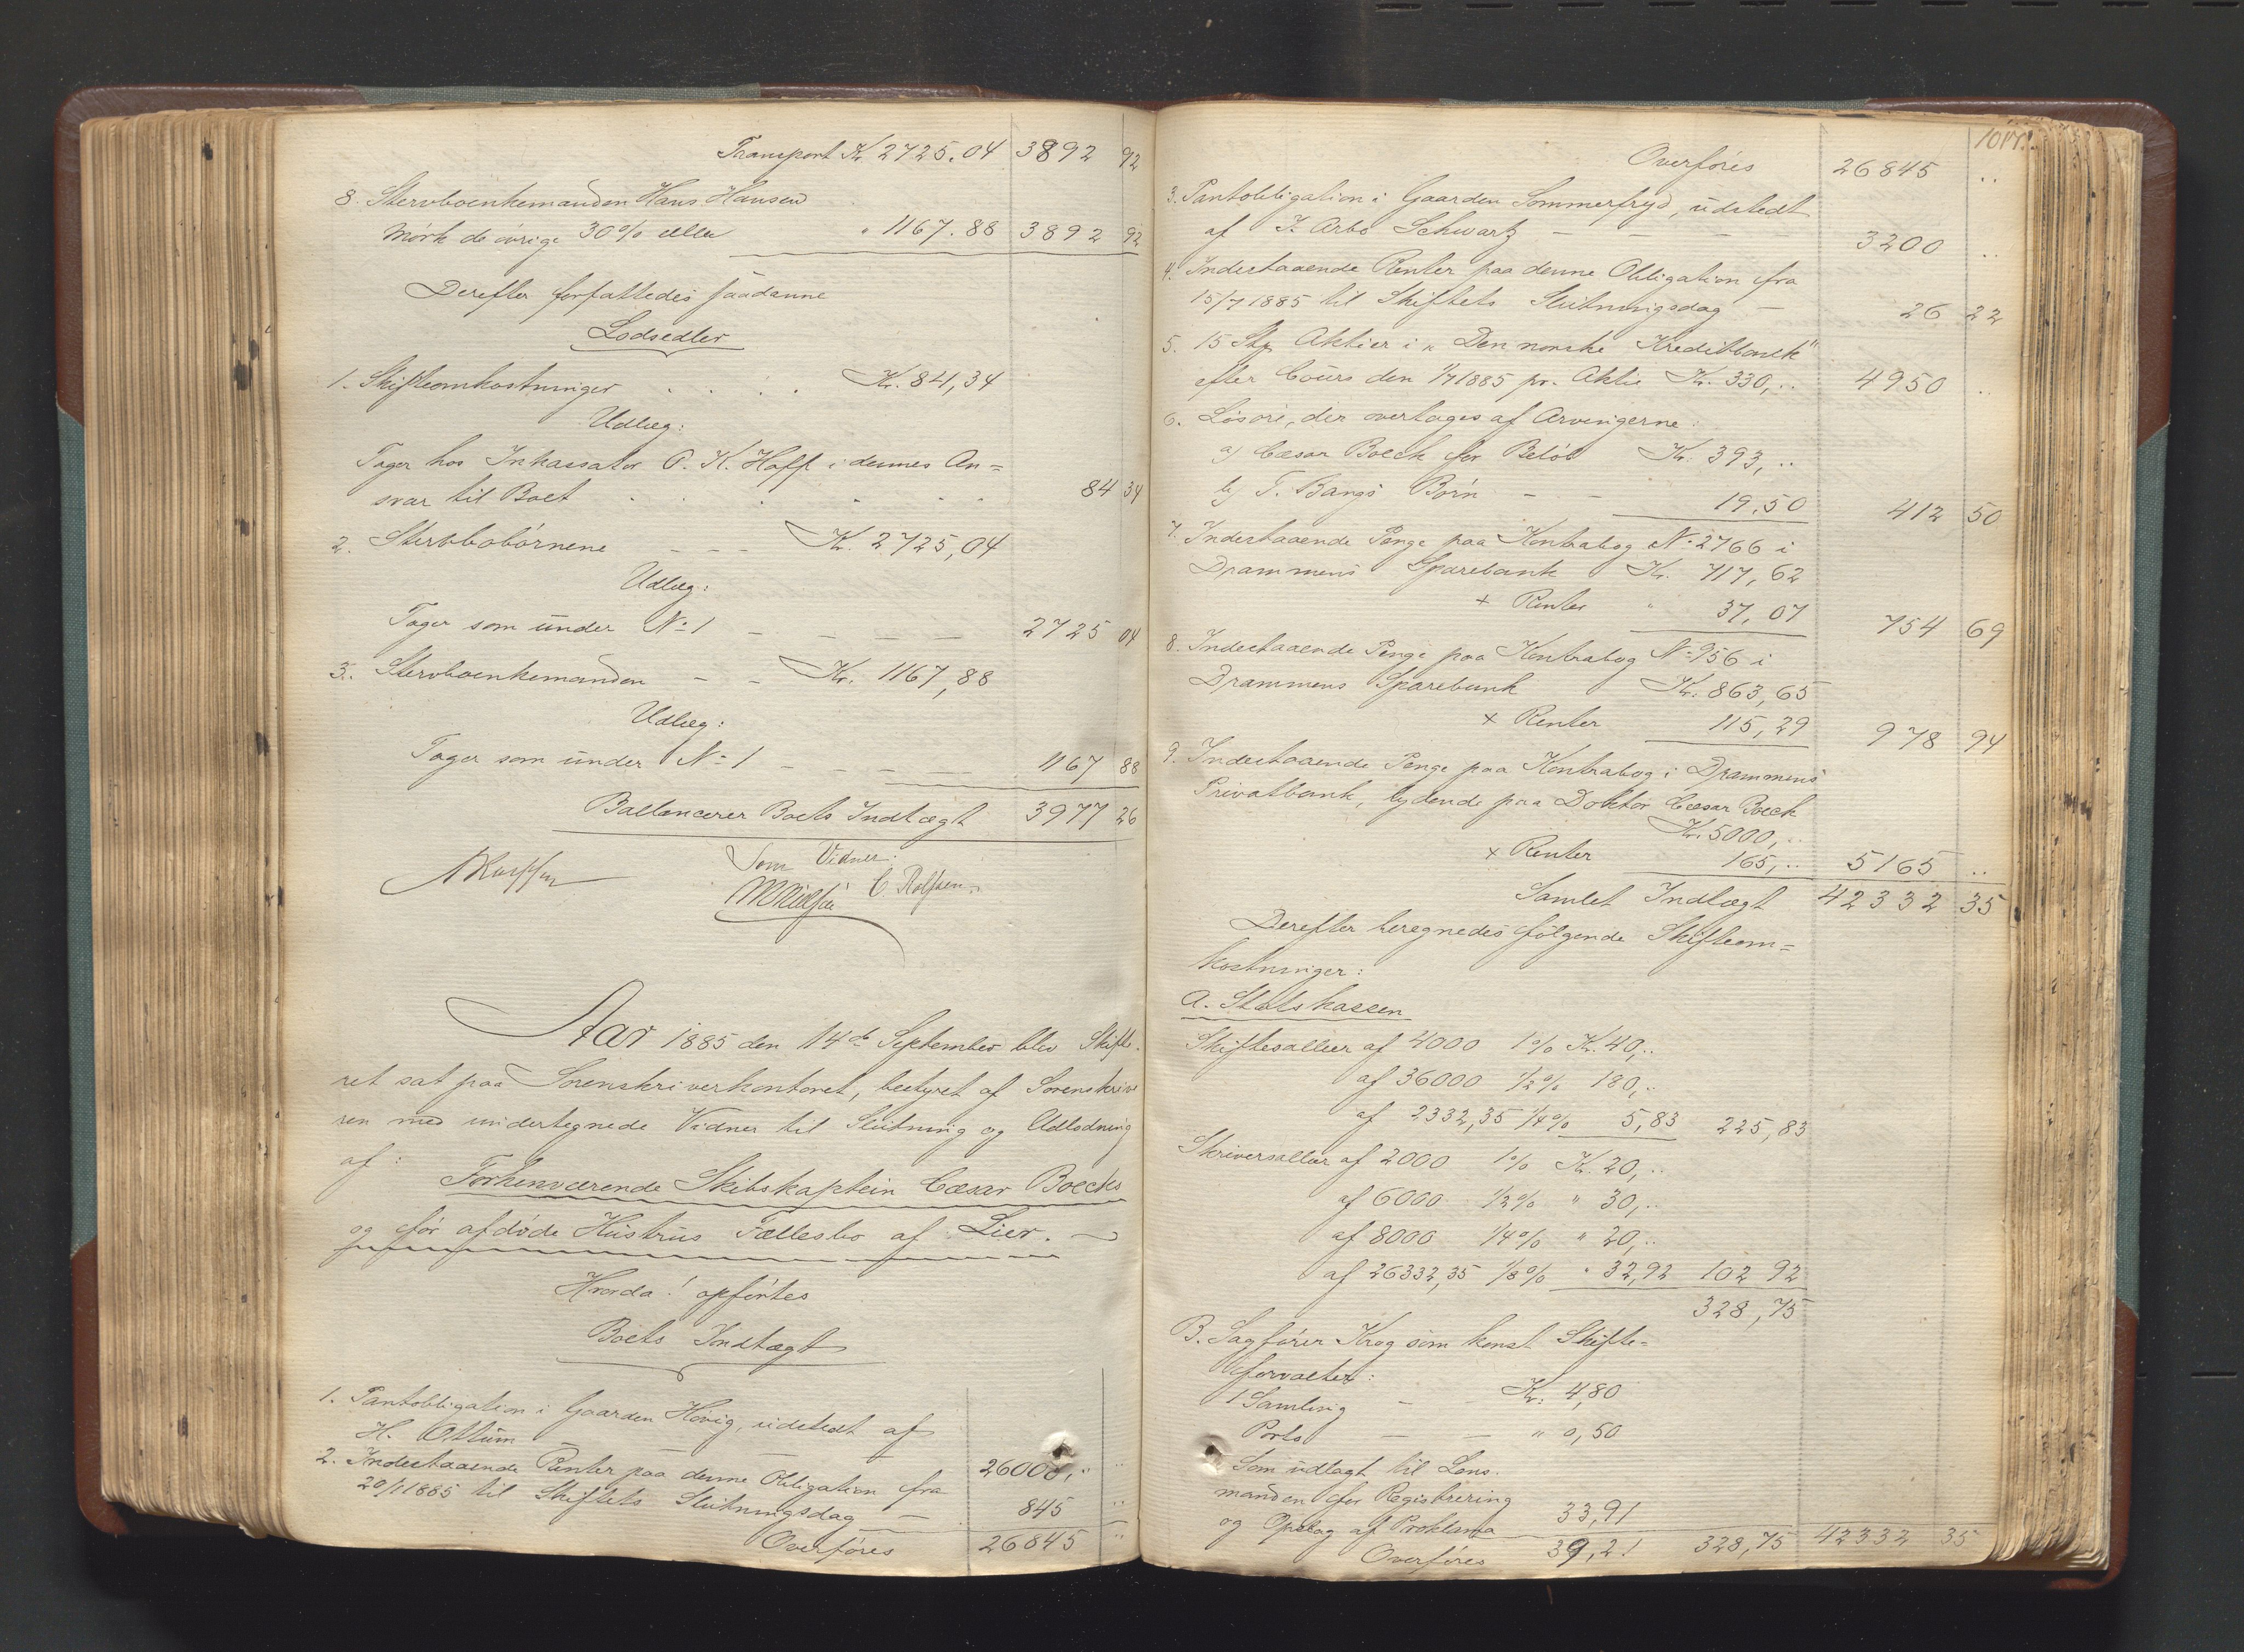 Transport Kr. 2725.04 3892 92
8. Stervboenkemanden Hans Hansen
Mørk de øvrige 30% eller " 1167.88 3892 92
Derefter forfattedes saadanne
Lodsedler
1. Skifteomkostninger . . . . Kr. 84,34
Udlæg:
Tager hos Inkassator P. K. Hoff i dennes An=
svar til Boet . . . . . . 84 34
2. Stervbobørnene - - - Kr. 2725,04
Udlæg:
Tager som under No 1 - - - - - 2725 04
3. Stervboenkemanden - - Kr. 1167,88
Udlæg:
Tager som under No 1 - - - - - 1167 88
Ballancerer Boets Indtægt 3977 26
Som Vidner:
C. Rolfsen
Aar 1885 den 14de September blev Skifte-
ret sat paa Sorenskriverkontoret, bestyret af Sorenskrive
ren med undertegnede Vidner til Slutning og Udlodning
af:
Forhenværende Skibskaptein Cæsar Boecks
og før afdøde Hustrus Fællesbo af Lier.
Hvorda! opførtes
Boets Indtægt
1. Pantobligation i Gaarden Høvig, udstedt af
H. Ottum - 26000,.. ..
2. Indestaaende Renter paa denne Obligation fra
20/1 1885 til Skiftets Slutningsdag - 845 ..
Overføres 26845 ..
101
Overføres 26845 ..
3. Pantobligation i Gaarden Sommerfryd, udstedt
af J. Arbo Schwartz - - - - 3200 ..
4. Indestaaende Renter paa denne Obligation fra
15/7 1885 til Skiftets Slutningsdag - 26 22
5. 15 Stk Aktier i "Den norske Kreditbank"
efter Cours den 1/7 1885 pr. Aktie Kr. 330,.. 4950 ..
6. Løsøre, der overtages af Arvingerne:
a) Cæsar Boeck for Beløb Kr. 393,..
b) T. Bangs Børn - - 19,50 412 50
7. Indestaaende Penge paa Kontrabog No 2766 i
Drammens Sparebank Kr. 717,62
+ Renter " 37,07 754 69
8. Indestaaende Penge paa Kontrabog No 956 i
Drammens Sparebank Kr. 863,65
+ Renter 115,29 978 94
9. Indestaaende Penge paa Kontrabog i Drammens
Privatbank, lydende paa Doktor Cæsar Boeck
Kr. 5000,..
+ Renter 165,.. 5165 ..
Samlet Indtægt 42332 35
Derefter beregnedes følgende Skifteom=
kostninger:
A. Statskassen
Skiftesallær af 4000 1% Kr. 40,..
af 36000 1/2% 180,..
af 2332,35 1/4% 5,83 225,83
Skriversallær af 2000 1% Kr. 20,..
af 6000 1/2% " 30,..
af 8000 1/4% " 20,..
af 26332,35 1/8% " 32,92 102 92
328,75
B. Sagfører Krog som konst. Skifte=
forvalter:
1 Samling - - Kr. 4,80
Porto - - " 0,50
Som udlagt til Lens.
manden for Registrering
og Opslag af Proklama 33,91
Overføres 39,21 328,75 42332 35